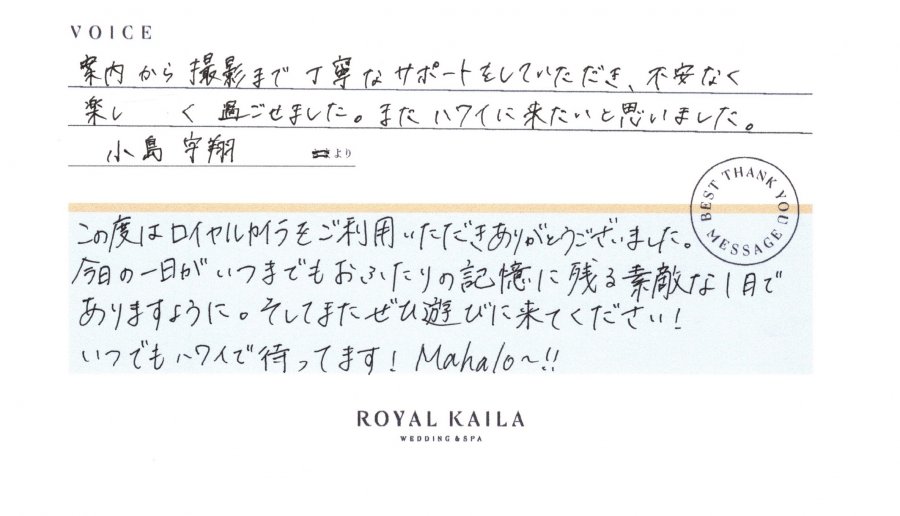 VOICE
案内から撮影まで丁寧なサポートをしていただき、不安なく
楽しく過ごせました。またハワイに来たいと思いました。
小島宇翔 より
BEST THANK YOU MESSAGE
この度はロイヤルカイラをご利用いただきありがとうございました。
今日の一日がいつまでもおふたりの記憶に残る素敵な1日で
ありますように。そしてまたぜひ遊びに来てください!
いつでもハワイで待ってます! Mahalo〜!!
ROYAL KAILA
WEDDING & SPA